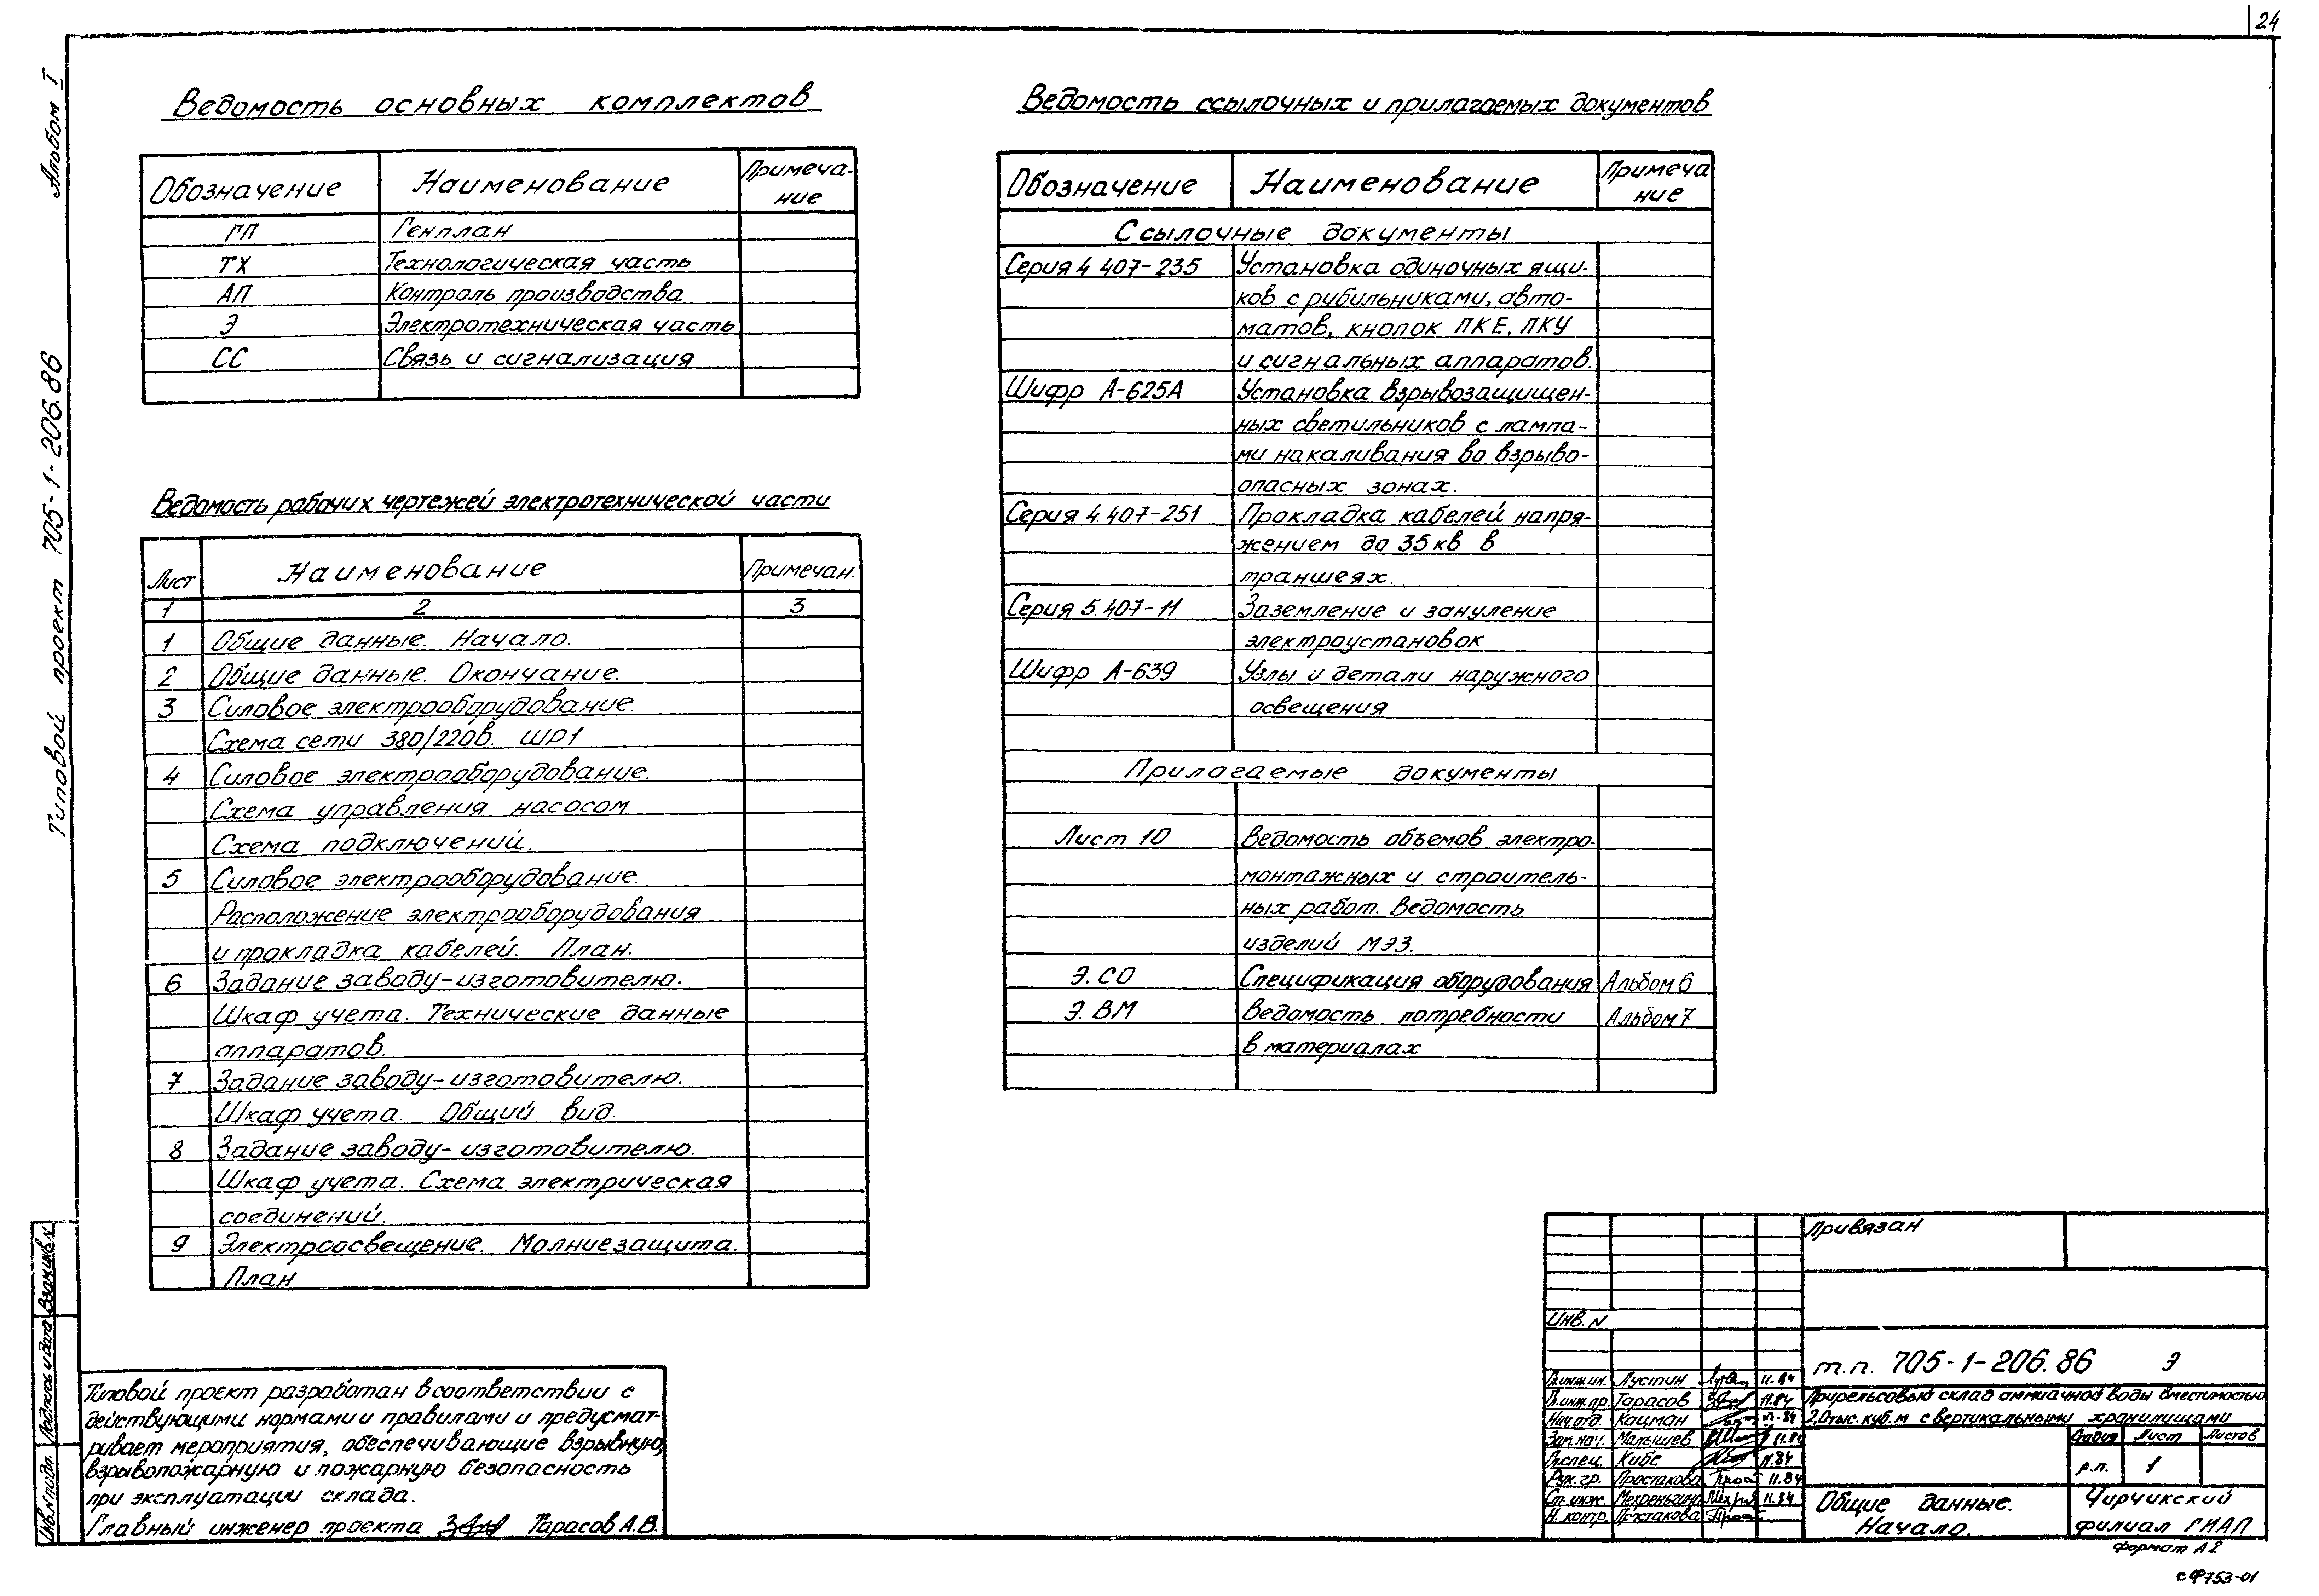 24
Альбом I
Типовой проект 705-1-206.86
Ведомость основных комплектов
Обозначение Наименование Примеча-
ние
ГП Генплан
ТХ Технологическая часть
АП Контроль производства
Э Электротехническая часть
СС Связь и сигнализация
Ведомость рабочих чертежей электротехнической части
Лист Наименование Примечан.
1 2 3
1 Общие данные. Начало.
2 Общие данные. Окончание.
3 Силовое электрооборудование.
Схема сети 380/220в. ШР1
4 Силовое электрооборудование.
Схема управления насосом
Схема подключений.
5 Силовое электрооборудование.
Расположение электрооборудования
и прокладка кабелей. План.
6 Задание заводу-изготовителю.
Шкаф учета. Технические данные
аппаратов.
7 Задание заводу-изготовителю.
Шкаф учета. Общий вид.
8 Задание заводу-изготовителю.
Шкаф учета. Схема электрическая
соединений.
9 Электроосвещение. Молниезащита.
План
Ведомость ссылочных и прилагаемых документов
Обозначение Наименование Примеча
ние
Ссылочные документы
Серия 4 407-235 Установка одиночных ящи-
ков с рубильниками, авто-
матов, кнопок ПКЕ, ПКУ
и сигнальных аппаратов.
Шифр А-625А Установка взрывозащищен-
ных светильников с лампа-
ми накаливания во взрыво-
опасных зонах.
Серия 4.407-251 Прокладка кабелей напря-
жением до 35кв в
траншеях.
Серия 5.407-11 Заземление и зануление
электроустановок
Шифр А-639 Узлы и детали наружного
освещения
Прилагаемые документы
Лист 10 Ведомость объемов электро-
монтажных и строитель-
ных работ. Ведомость
изделий МЭЗ.
Э.СО Спецификация оборудования Альбом 6
Э.ВМ Ведомость потребности Альбом 7
в материалах
Типовой проект разработан в соответствии с
действующими нормами и правилами и предусмат-
ривает мероприятия, обеспечивающие взрывную,
взрывопожарную и пожарную безопасность
при эксплуатации склада.
Главный инженер проекта Тарасов А.В.
Инв.N подл. Подпись и дата Взам.инв.N
Привязан
Инв. N
т.п. 705-1-206.86 Э
Гл.инж.ин. Лустин 11.84
Гл.инж.пр. Тарасов 11.84
Нач.отд. Кацман 11-84
Зам.нач. Малышев 11.84
Гл.спец. Кибе 11.84
Рук.гр. Простакова 11.84
Ст.инж. Мехреньгина 11.84
Н. контр. Простакова
Прирельсовый склад аммиачной воды вместимостью
2,0тыс.куб.м с вертикальными хранилищами
Стадия Лист Листов
р.п. 1
Общие данные.
Начало.
Чирчикский
филиал ГИАП
формат А2
сф753-01